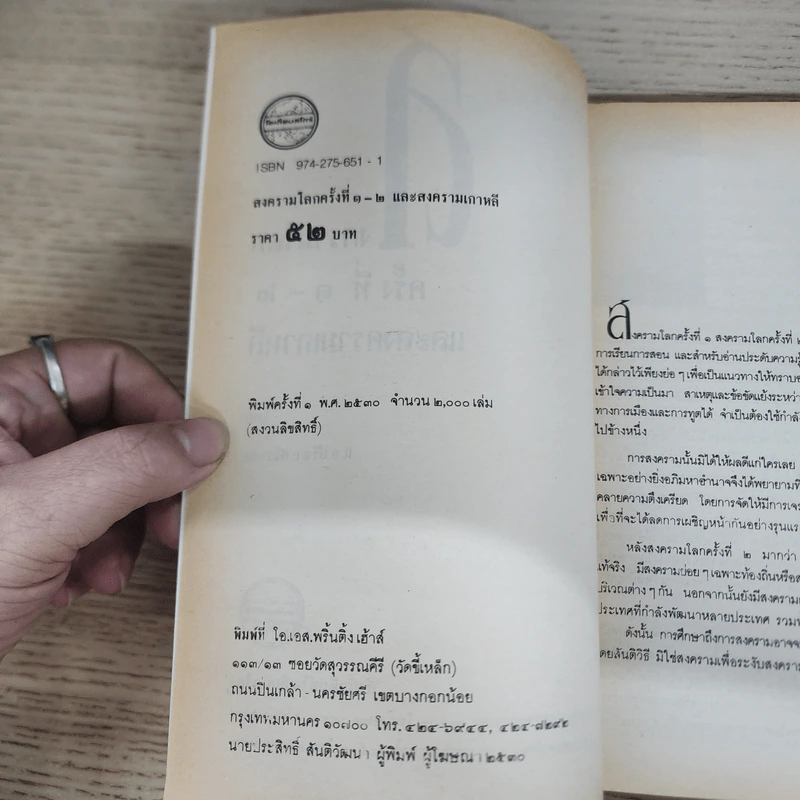 ISBN 974-275-651-1
สงครามโลกครั้งที่ ๑-๒ และสงครามเกาหลี
ราคา ๕๒ บาท
พิมพ์ครั้งที่ ๑ พ.ศ. ๒๕๓๐ จำนวน ๒,๐๐๐ เล่ม
(สงวนลิขสิทธิ์)
พิมพ์ที่ โอ.เอส.พริ้นติ้ง เฮ้าส์
๑๑๓/๑๓ ซอยวัดสุวรรณคีรี (วัดขี้เหล็ก)
ถนนปิ่นเกล้า-นครชัยศรี เขตบางกอกน้อย
กรุงเทพมหานคร ๑๐๗๐๐ โทร. ๔๒๔-๖๙๔๔, ๔๒๔-๘๒๙๒
นายประสิทธิ์ สันติวัฒนา ผู้พิมพ์ ผู้โฆษณา ๒๕๓๐
สงครามโลกครั้งที่ ๑ สงครามโลกครั้งที่
การเรียนการสอน และสำหรับอ่านประดับความรู้
ได้กล่าวไว้เพียงย่อ ๆ เพื่อเป็นแนวทางให้ทราบ
เข้าใจความเป็นมา สาเหตุและข้อขัดแย้งระหว่
ทางการเมืองและการทูตได้ จำเป็นต้องใช้กำลั
ไปข้างหนึ่ง
การสงครามนั้นมิได้ให้ผลดีแก่ใครเลย
เฉพาะอย่างยิ่งอภิมหาอำนาจจึงได้พยายามที่
คลายความตึงเครียด โดยการจัดให้มีการเจร
เพื่อที่จะได้ลดการเผชิญหน้ากันอย่างรุนแร
หลังสงครามโลกครั้งที่ ๒ มากว่า
แท้จริง มีสงครามย่อย ๆ เฉพาะท้องถิ่นหรือ
บริเวณต่าง ๆ กัน นอกจากนั้นยังมีสงคราม
ประเทศที่กำลังพัฒนาหลายประเทศ รวมทั
ดังนั้น การศึกษาถึงการสงครามอาจจ
โดยสันติวิธี มิใช่สงครามเพื่อระงับสงคราม